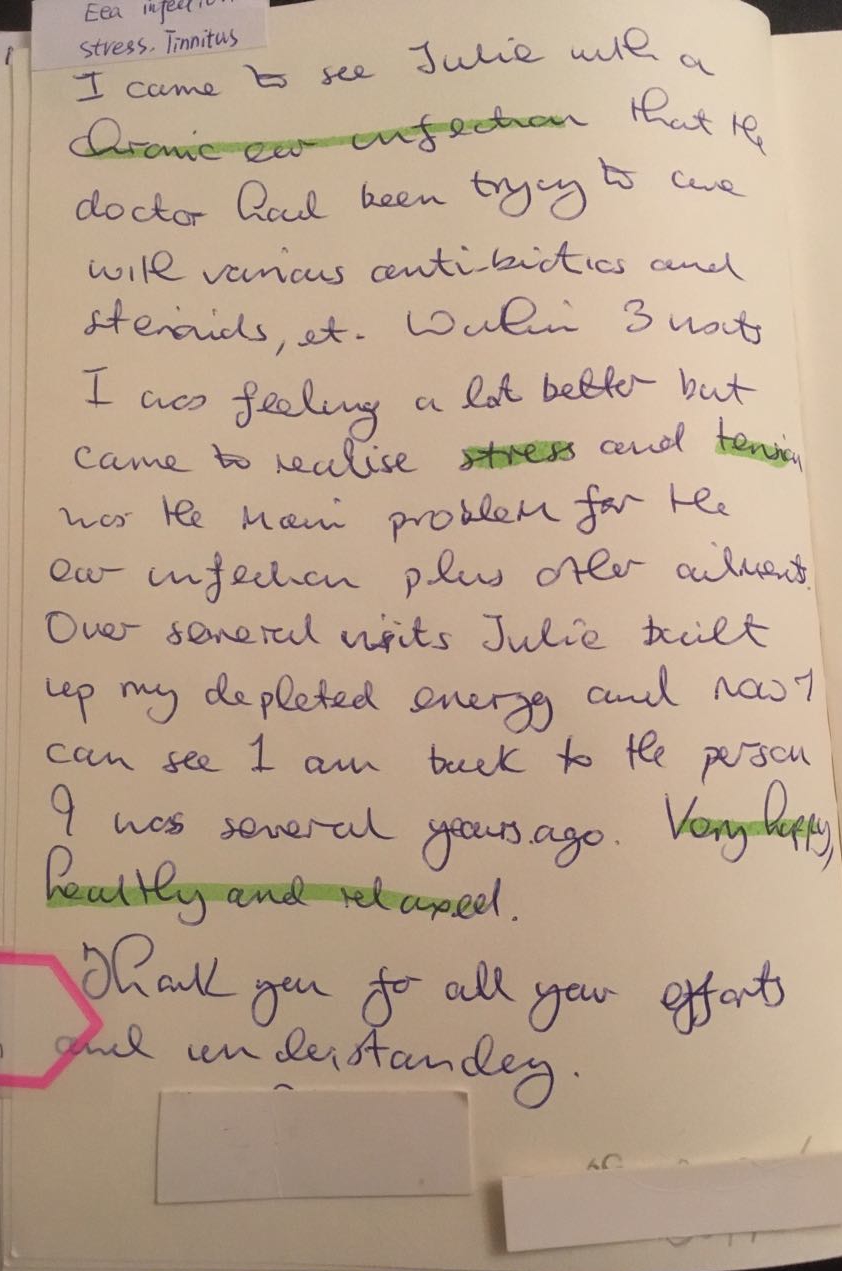 Eea infection
stress. Tinnitus
I came to see Julie with a
chronic ear infection that the
doctor had been trying to cure
with various anti-biotics and
steroids, et. Within 3 visits
I was feeling a lot better but
came to realise stress and tension
was the main problem for the
ear infection plus other ailments.
Over several visits Julie built
up my depleted energy and now I
can see I am back to the person
I was several years ago. Very happy,
healthy and relaxed.
Thank you for all your efforts
and understanding.